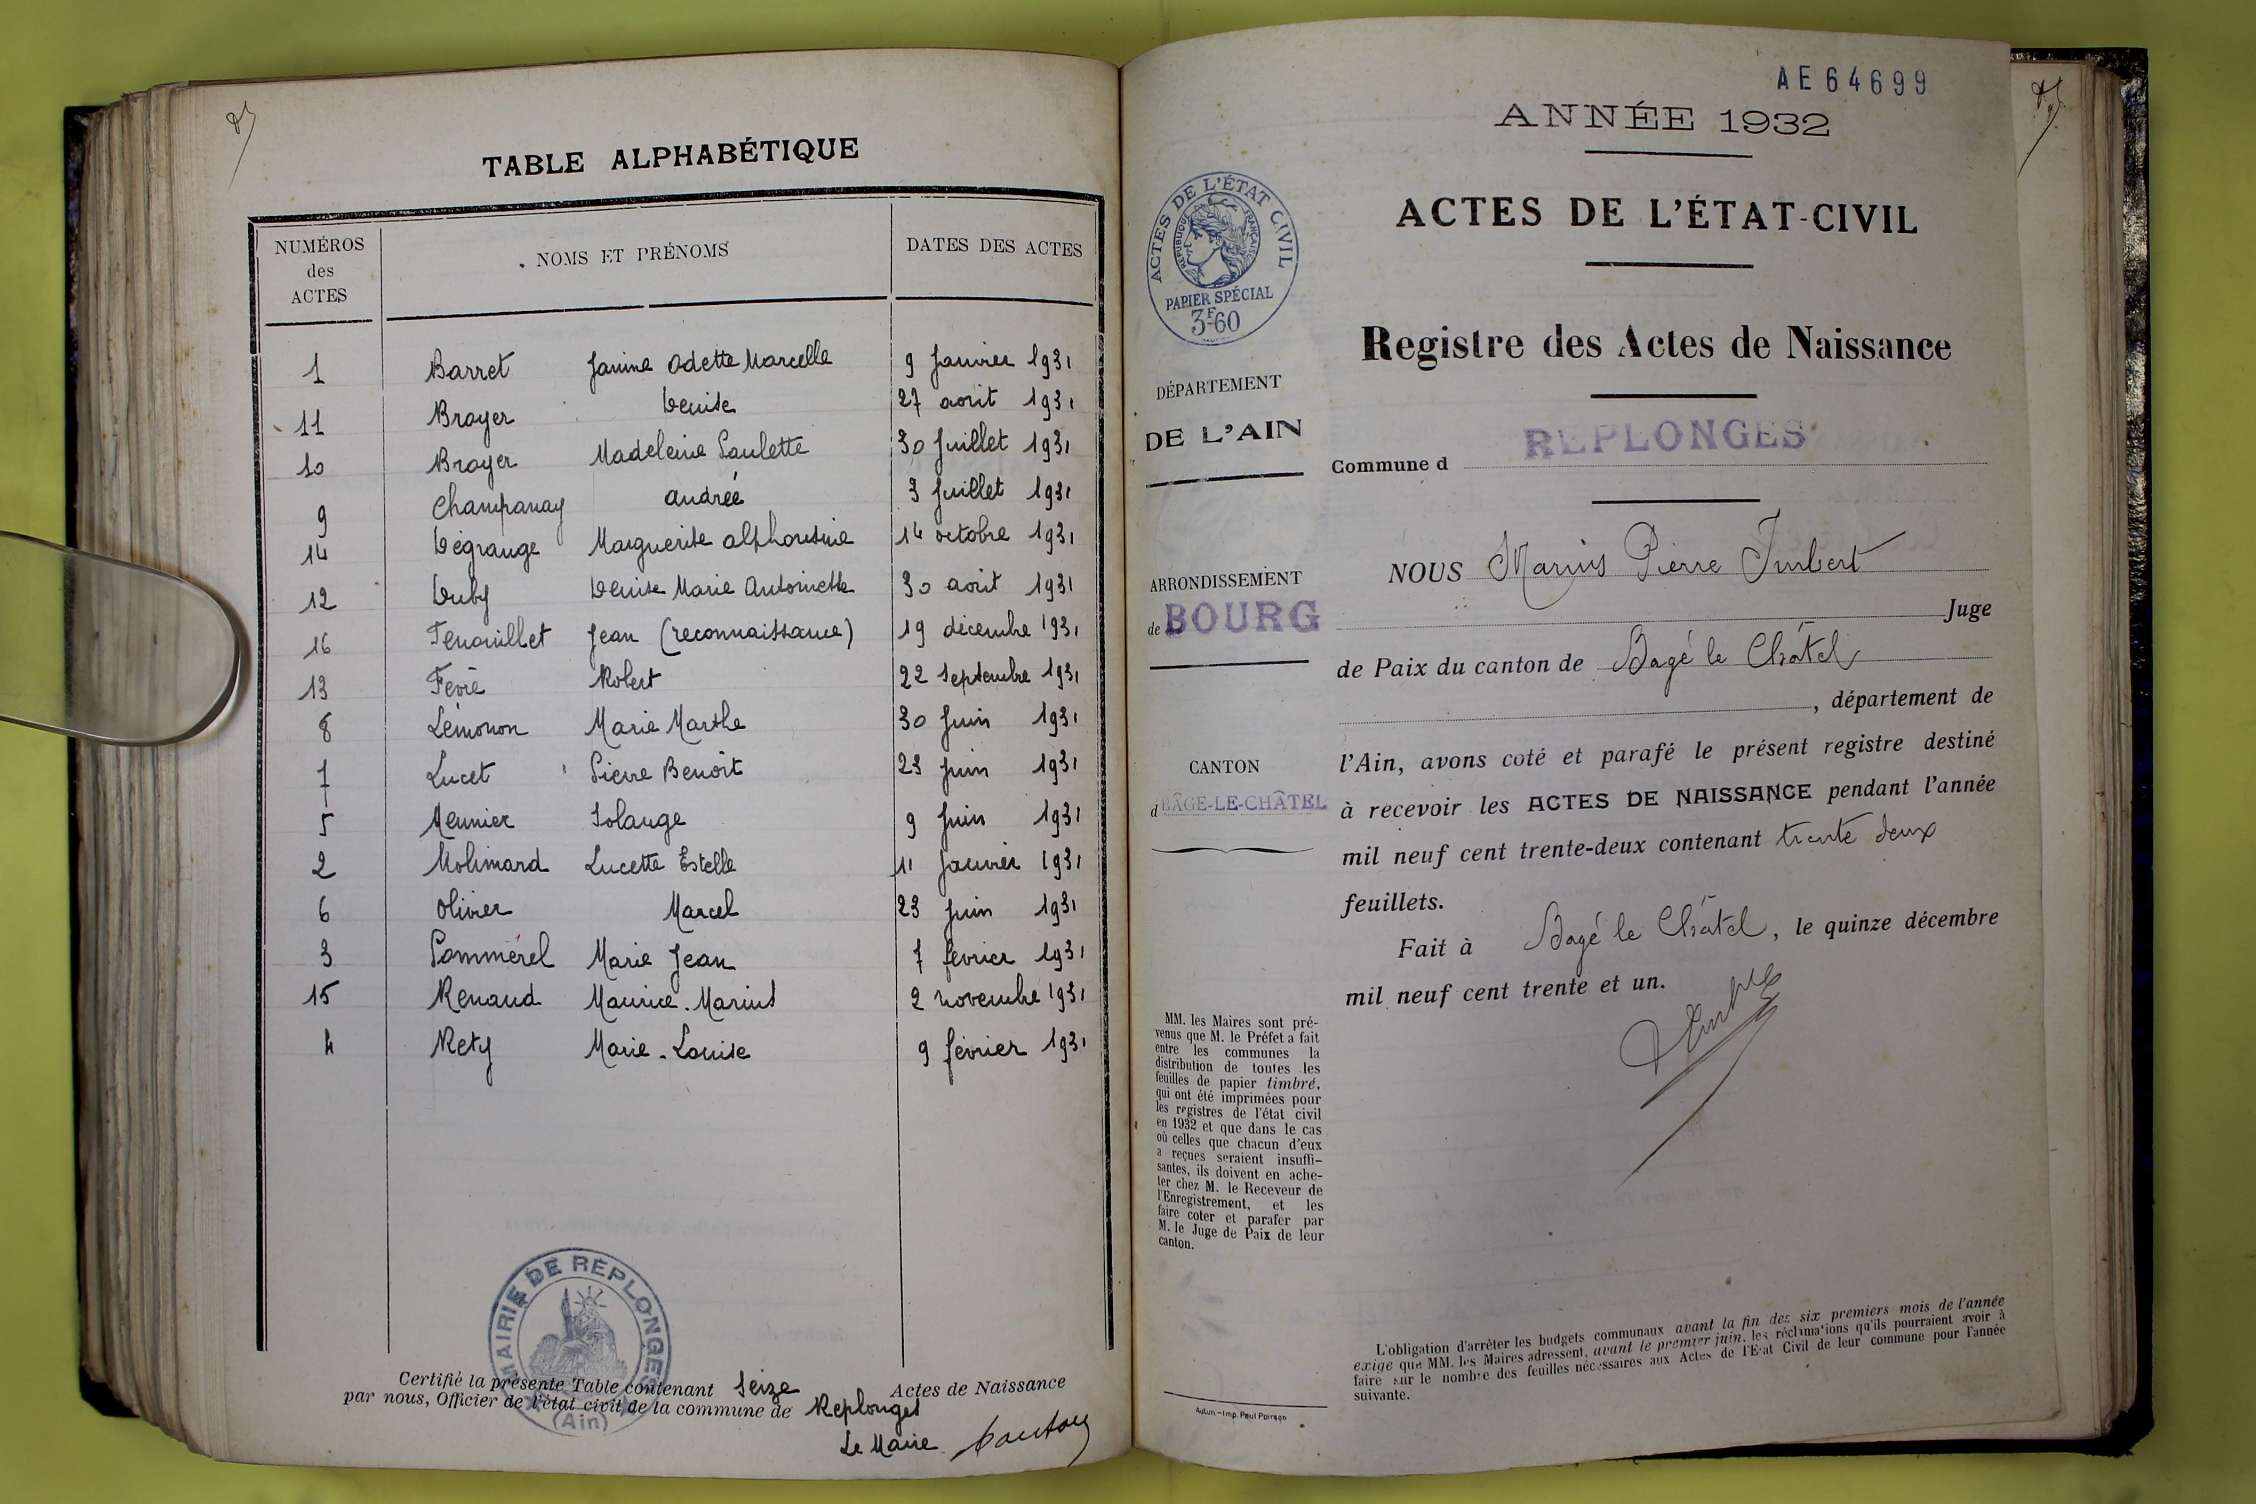 TABLE ALPHABÉTIQUE
NUMÉROS des ACTES NOMS ET PRÉNOMS DATES DES ACTES
1 Barret Janine Odette Marcelle 9 Janvier 1931
11 Broyer Denise 27 août 1931
10 Broyer Madeleine Paulette 30 Juillet 1931
9 Champanay Andrée 3 Juillet 1931
14 Dégrange Marguerite Alphonsine 14 octobre 1931
12 Duby Denise Marie Antoinette 30 août 1931
16 Fenouillet Jean (reconnaissance) 19 décembre 1931
13 Févre Robert 22 Septembre 1931
8 Lémonon Marie Marthe 30 Juin 1931
7 Lucet Pierre Benoît 23 Juin 1931
5 Meunier Solange 9 Juin 1931
2 Molimard Lucette Estelle 11 Janvier 1931
6 Olivier Marcel 23 Juin 1931
3 Pommérel Marie Jean 7 février 1931
15 Renaud Maurice-Marius 2 novembre 1931
4 Rety Marie-Louise 9 février 1931
MAIRIE DE REPLONGES
(Ain)
Certifié la présente Table contenant Seize Actes de Naissance
par nous, Officier de l'état civil de la commune de Replonges
Le Maire
AE64699
ANNÉE 1932
ACTES DE L'ÉTAT-CIVIL
Registre des Actes de Naissance
ACTES DE L'ÉTAT CIVIL
RÉPUBLIQUE FRANÇAISE
PAPIER SPÉCIAL
3F60
DÉPARTEMENT
DE L'AIN
ARRONDISSEMENT
de BOURG
CANTON
d BÂGÉ-LE-CHÂTEL
MM. les Maires sont pré-
venus que M. le Préfet a fait
entre les communes la
distribution de toutes les
feuilles de papier timbré,
qui ont été imprimées pour
les registres de l'état civil
en 1932 et que dans le cas
où celles que chacun d'eux
a reçues seraient insuffi-
santes, ils doivent en ache-
ter chez M. le Receveur de
l'Enregistrement, et les
faire coter et parafer par
M. le Juge de Paix de leur
canton.
Autun.-Imp. Paul Poirson
Commune d REPLONGES
NOUS Marius Pierre Imbert
Juge
de Paix du canton de Bagé le Châtel
, département de
l'Ain, avons coté et parafé le présent registre destiné
à recevoir les ACTES DE NAISSANCE pendant l'année
mil neuf cent trente-deux contenant trente deux
feuillets.
Fait à Bagé le Châtel, le quinze décembre
mil neuf cent trente et un.
L'obligation d'arrêter les budgets communaux avant la fin des six premiers mois de l'année
exige que MM. les Maires adressent, avant le premier juin, les réclamations qu'ils pourraient avoir à
faire sur le nombre des feuilles nécessaires aux Actes de l'Etat Civil de leur commune pour l'année
suivante.